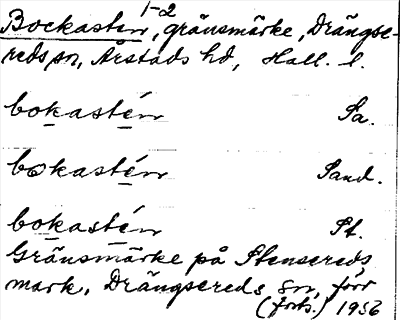 1-2
Bockasten, gränsmärke, Drängse-
reds sn, Årstads hd, Hall. l.
bokastén Sa.
bokastén Sand.
bokastén St.
Gränsmärke på Stensereds
mark, Drängsereds sn, förr
(forts.) 1956